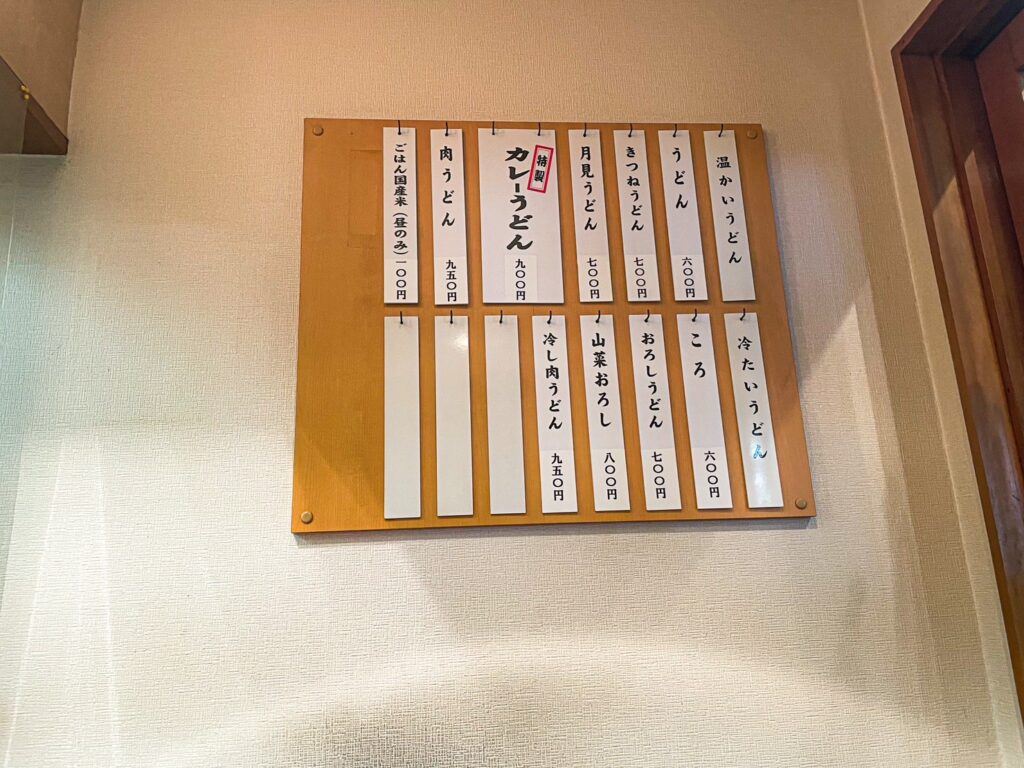 温かいうどん
うどん 六〇〇円
きつねうどん 七〇〇円
月見うどん 七〇〇円
特製
カレーうどん 九〇〇円
肉うどん 九五〇円
ごはん国産米(昼のみ) 一〇〇円
冷たいうどん
ころ 六〇〇円
おろしうどん 七〇〇円
山菜おろし 八〇〇円
冷し肉うどん 九五〇円